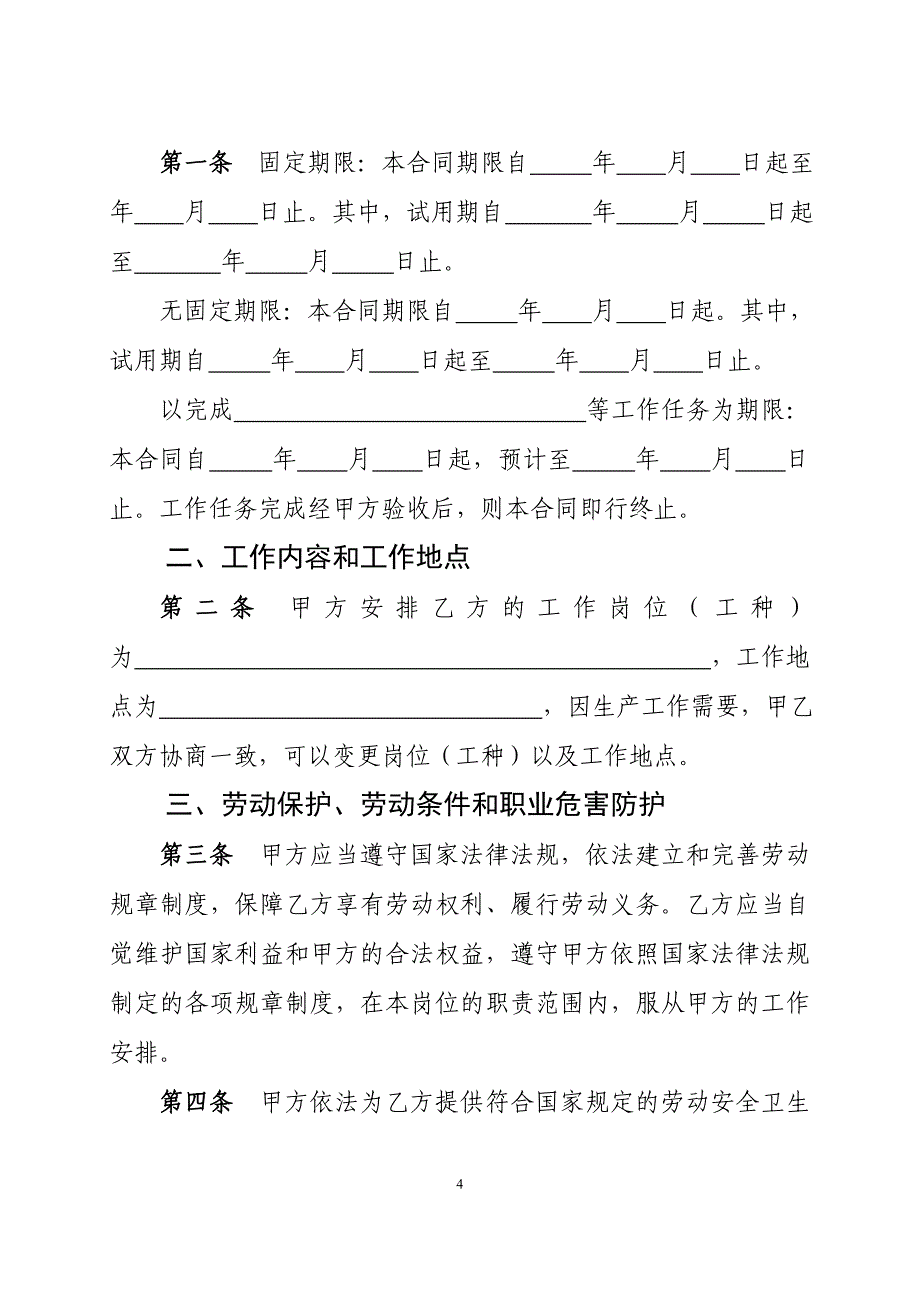 第一条　固定期限：本合同期限自_____年____月____日起至
年____月____日止。其中，试用期自_______年_____月_____日起
至_______年_____月_____日止。
无固定期限：本合同期限自_____年____月____日起。其中，
试用期自_____年____月____日起至_____年____月____日止。
以完成_____________________________等工作任务为期限：
本合同自_____年____月____日起，预计至_____年____月____日
止。工作任务完成经甲方验收后，则本合同即行终止。
二、工作内容和工作地点
第二条　甲方安排乙方的工作岗位（工种）
为_______________________________________________，工作地
点为_______________________________，因生产工作需要，甲乙
双方协商一致，可以变更岗位（工种）以及工作地点。
三、劳动保护、劳动条件和职业危害防护
第三条　甲方应当遵守国家法律法规，依法建立和完善劳动
规章制度，保障乙方享有劳动权利、履行劳动义务。乙方应当自
觉维护国家利益和甲方的合法权益，遵守甲方依照国家法律法规
制定的各项规章制度，在本岗位的职责范围内，服从甲方的工作
安排。
第四条　甲方依法为乙方提供符合国家规定的劳动安全卫生
4